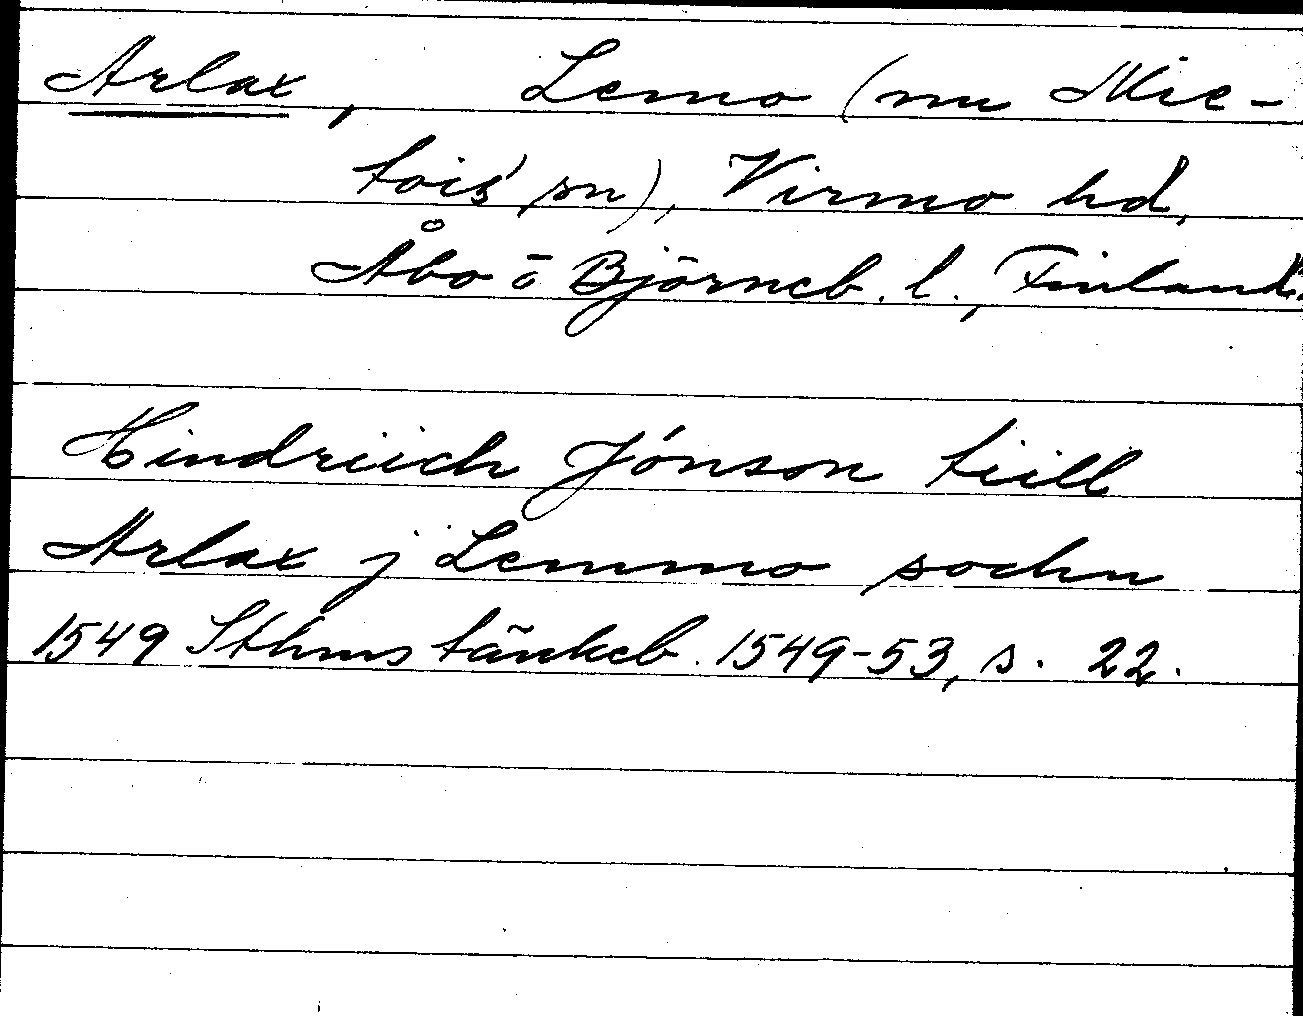 Arlax, Lemo (nu Mie-
tois sn), Virmo hd,
Åbo o Björneb. l., Finland.
Hindriich Jönson tiill
Arlax j Lemmo sochn
1549 Sthms tänkeb. 1549-53, s. 22.